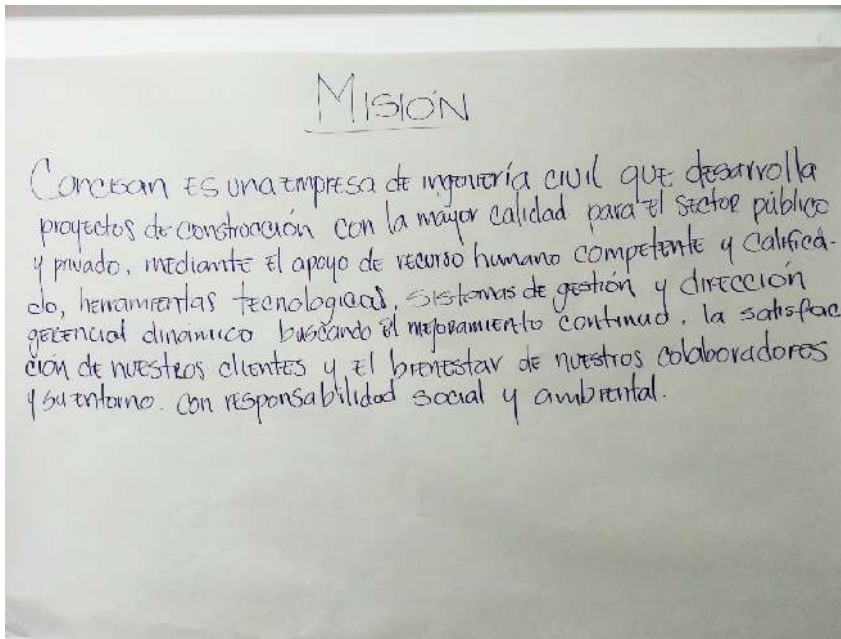 MISIÓN
Concesan es una empresa de ingeniería civil que desarrolla
proyectos de construcción con la mayor calidad para el sector público
y privado, mediante el apoyo de recurso humano competente y califica-
do, herramientas tecnologicas, sistemas de gestión y dirección
gerencial dinámico buscando el mejoramiento continuo, la satisfac
ción de nuestros clientes y el bienestar de nuestros colaboradores
y su entorno. con responsabilidad social y ambiental.